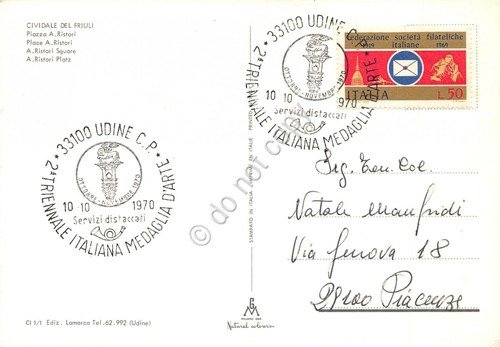 CIVIDALE DEL FRIULI
Piazza A.Ristori
Place A.Ristori
A.Ristori Square
A.Ristori Platz
33100 UDINE C.P.
2ª TRIENNALE ITALIANA MEDAGLIA D'ARTE
OTTOBRE - NOVEMBRE 1970
10-10 1970
Servizi distaccati
Federazione società filateliche
1919 italiane 1969
ITALIA L.50
33100 UDINE C.P.
2ª TRIENNALE ITALIANA MEDAGLIA D'ARTE
OTTOBRE - NOVEMBRE 1970
10-10 1970
Servizi distaccati
Sig. Ten. Col.
Natale Manfridi
Via Genova 18
29100 Piacenza
STAMPATO IN ITALIA - PRINTED IN ITALY
do not copy
CI 1/1 Ediz. Lamarca Tel. 62.992 (Udine)
MILANO
Natural colours